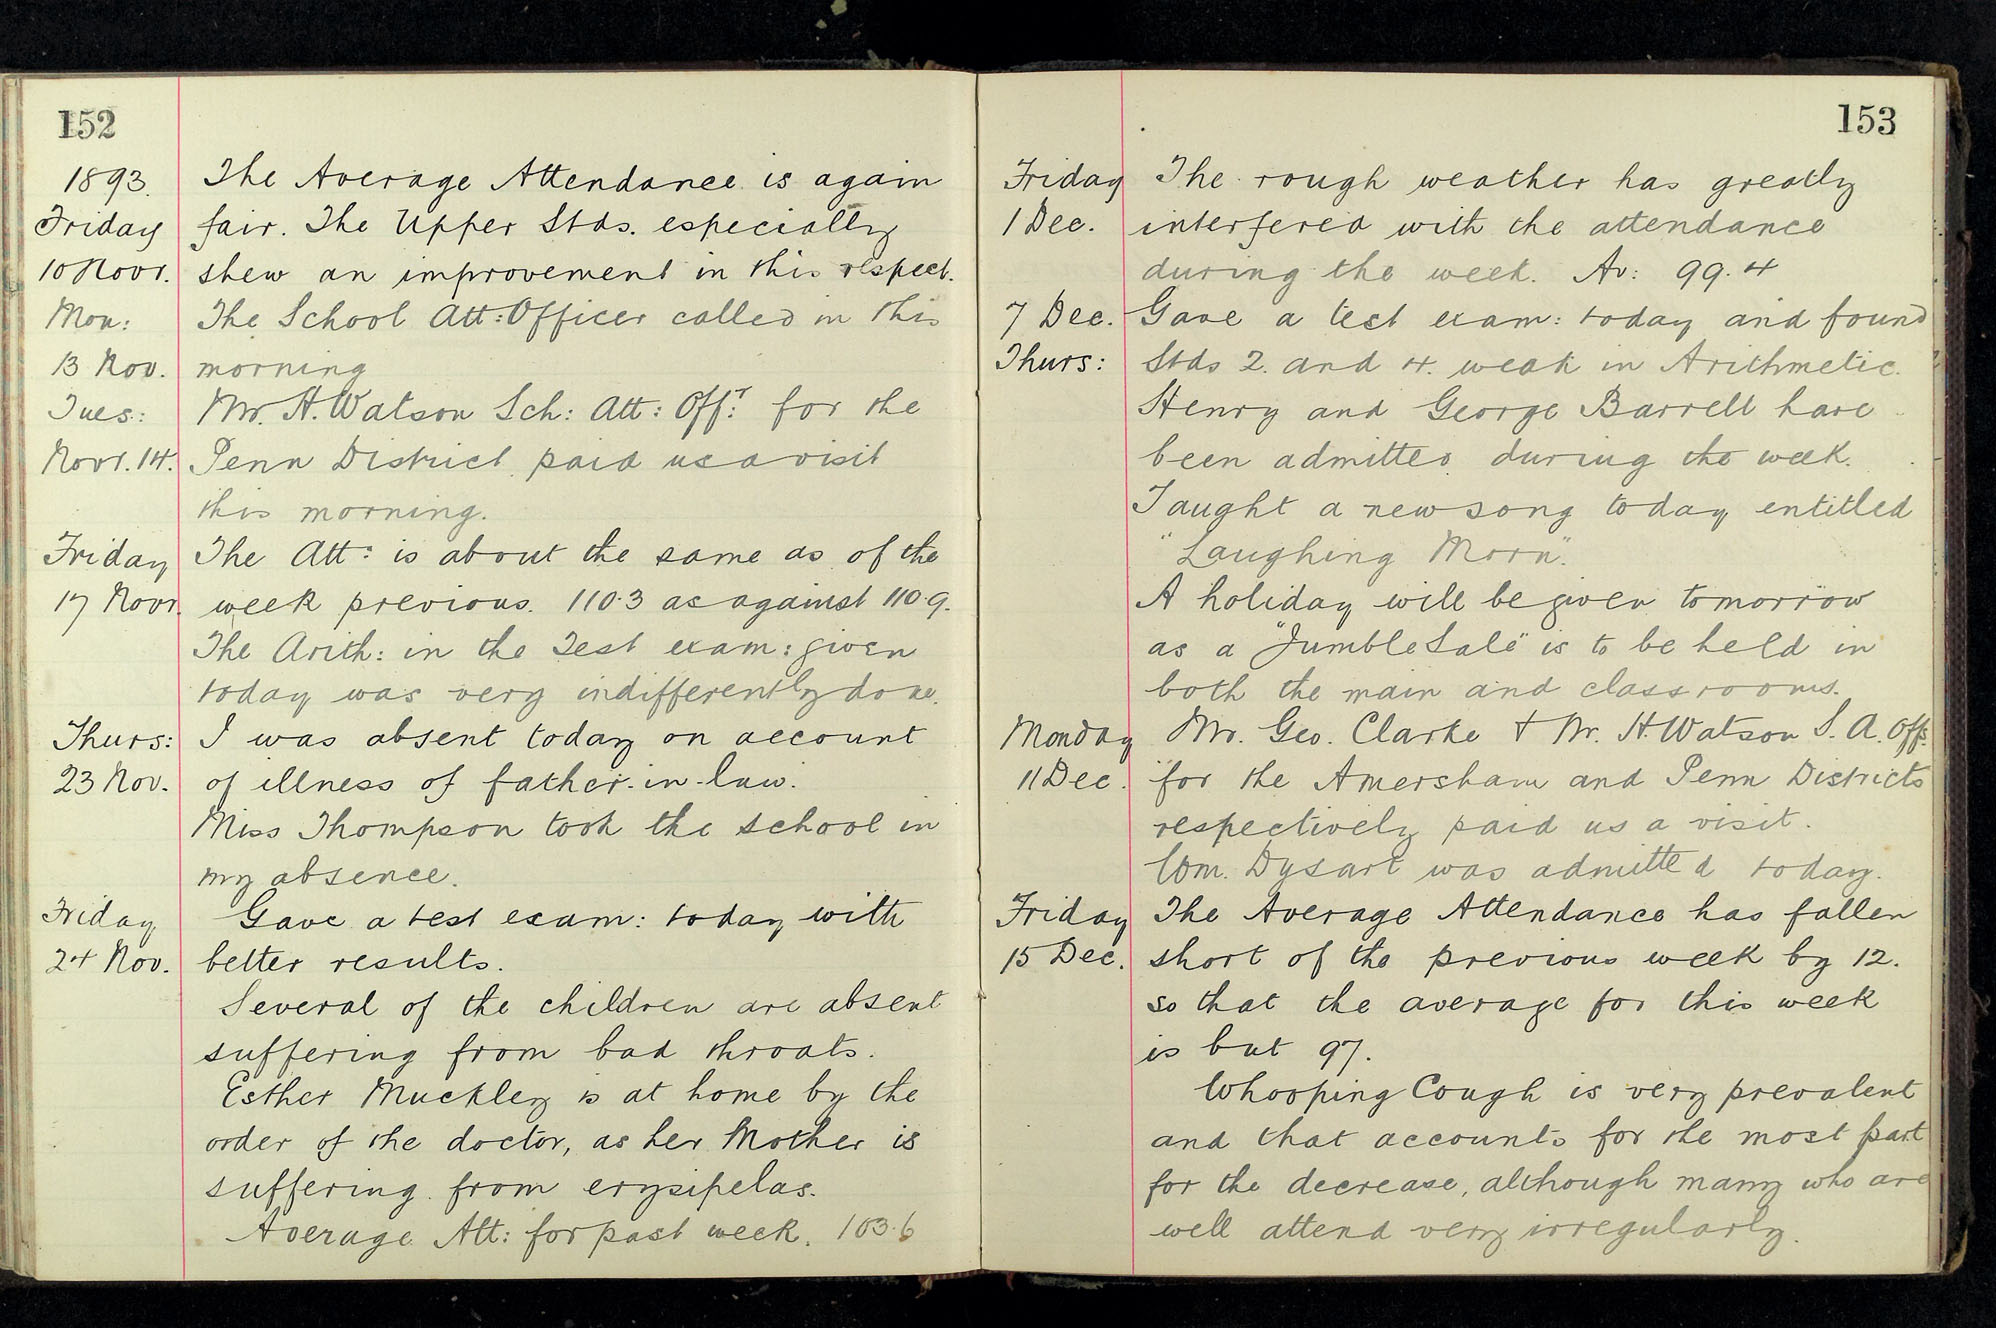 152
1893. The Average Attendance is again
Friday fair. The Upper Stds. especially
10 Novr. shew an improvement in this respect.
Mon: The School Att: Officer called in this
13 Nov. morning
Tues: Mr. H. Watson Sch: Att: Offr: for the
Novr. 14. Penn District paid us a visit
this morning.
Friday The Att: is about the same as of the
17 Novr. week previous. 110.3 as against 110.9.
The Arith: in the Test exam: given
today was very indifferently done.
Thurs: I was absent today on account
23 Nov. of illness of father-in-law.
Miss Thompson took the school in
my absence.
Friday Gave a test exam: today with
24 Nov. better results.
Several of the children are absent
suffering from bad throats.
Esther Muckley is at home by the
order of the doctor, as her Mother is
suffering from erysipelas.
Average Att: for past week. 103.6
153
Friday The rough weather has greatly
1 Dec. interfered with the attendance
during the week. Av: 99.4
7 Dec. Gave a test exam: today and found
Thurs: Stds 2. and 4. weak in Arithmetic.
Henry and George Barrett have
been admitted during the week.
Taught a new song today entitled
"Laughing Morn".
A holiday will be given tomorrow
as a "Jumble Sale" is to be held in
both the main and classrooms.
Monday Mr. Geo. Clarke & Mr. H. Watson S. A. Offs.
11 Dec. for the Amersham and Penn Districts
respectively paid us a visit.
Wm. Dysart was admitted today.
Friday The Average Attendance has fallen
15 Dec. short of the previous week by 12.
so that the average for this week
is but 97.
Whooping Cough is very prevalent
and that accounts for the most part
for the decrease, although many who are
well attend very irregularly.